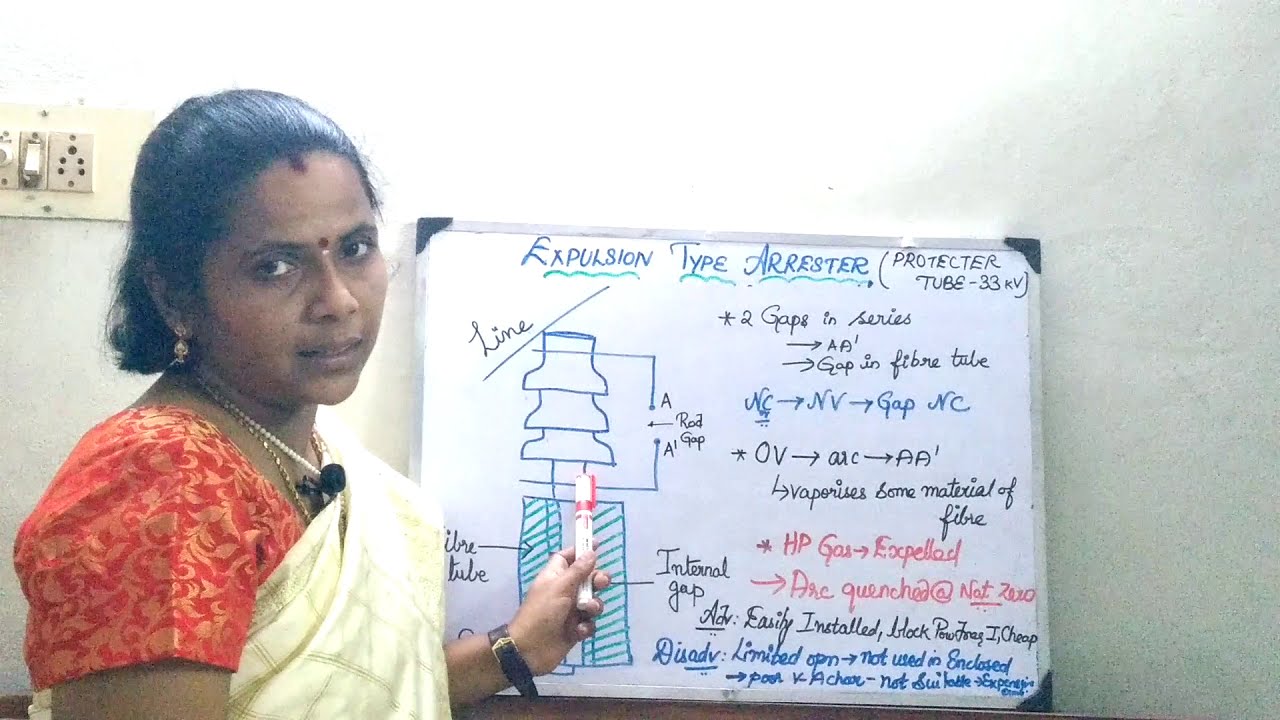 EXPULSION TYPE ARRESTER (PROTECTER
TUBE-33 KV)
Line
A
Rod
Gap
A'
ibre
tube
Internal
gap
* 2 Gaps in series
→ AA'
→ Gap in fibre tube
NC → NV → Gap NC
* OV → arc → AA'
↳ vaporises some material of
fibre
* HP Gas → Expelled
→ Arc quenched@ Nat zero
Adv: Easily Installed, block Pow Freq I, Cheap
Disadv: Limited opn → not used in Enclosed
→ poor V-A char - not Suitable →